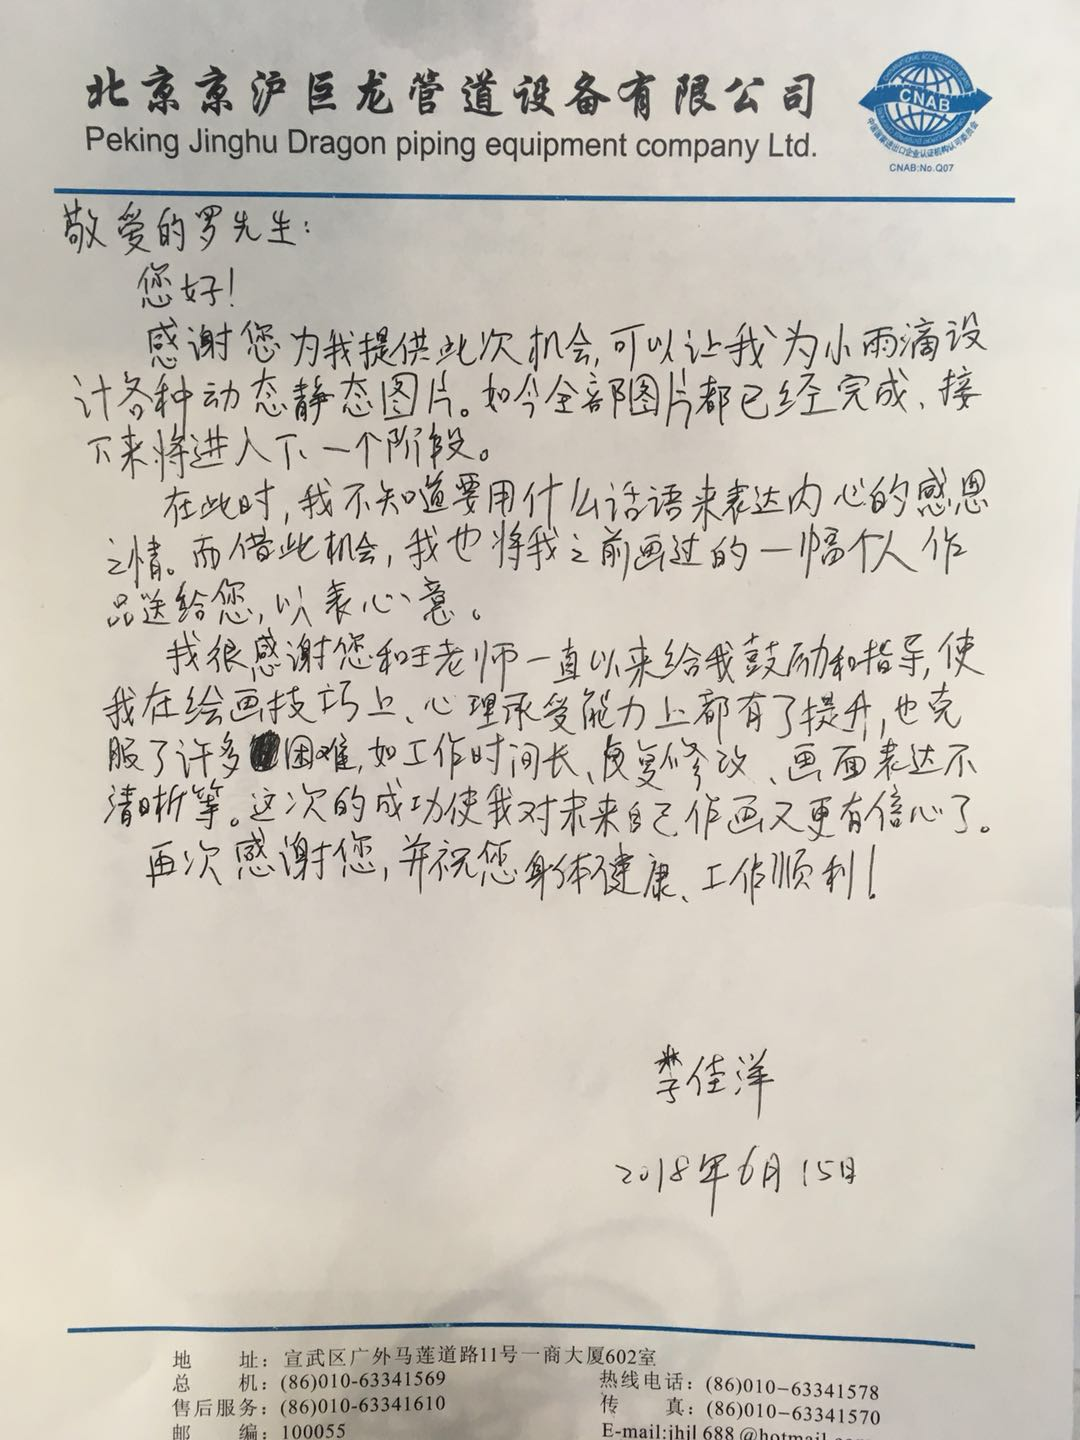 北京京沪巨龙管道设备有限公司
Peking Jinghu Dragon piping equipment company Ltd.
CNAB
CNAB:No.Q07
敬爱的罗先生:
您好!
感谢您为我提供此次机会,可以让我为小雨滴设
计各种动态静态图片。如今全部图片都已经完成、接
下来将进入下一个阶段。
在此时,我不知道要用什么话语来表达内心的感恩
之情。而借此机会,我也将我之前画过的一幅个人作
品送给您,以表心意。
我很感谢您和王老师一直以来给我鼓励和指导,使
我在绘画技巧上、心理承受能力上都有了提升,也克
服了许多困难,如工作时间长、反复修改、画面表达不
清晰等。这次的成功使我对未来自己作画又更有信心了。
再次感谢您,并祝您身体健康、工作顺利!
李佳洋
2018年6月15日
地 址: 宣武区广外马莲道路11号一商大厦602室
总 机: (86)010-63341569 热线电话: (86)010-63341578
售后服务: (86)010-63341610 传 真: (86)010-63341570
邮 编: 100055 E-mail:jhjl 688 @hotmail.com